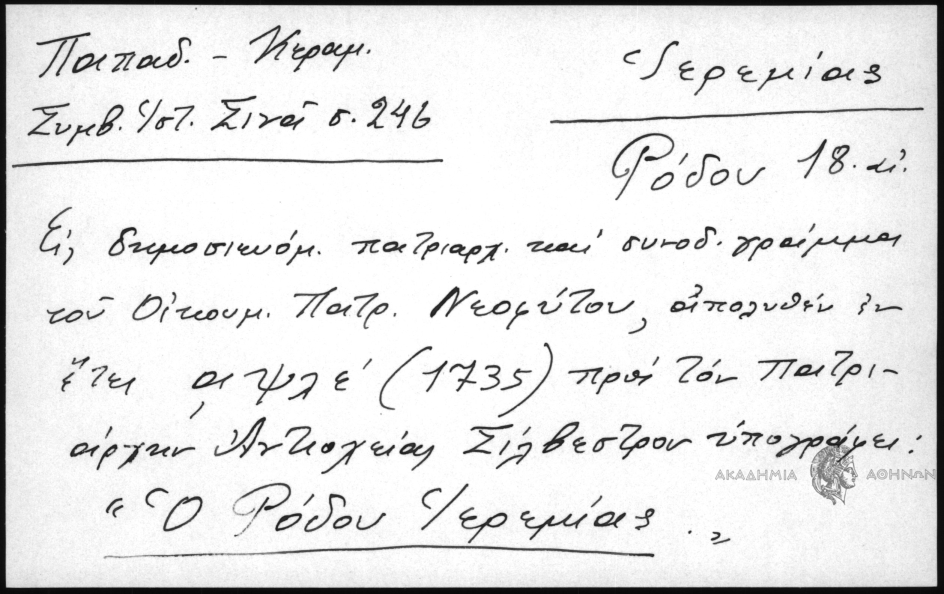 Παπαδ. - Κεραμ.
Συμβ. Ἱστ. Σινᾶ σ. 246
Ἱερεμίας
Ρόδου 18. αἰ.
Εἰς δημοσιευόμ. πατριαρχ. καί συνοδ. γράμμα
τοῦ Οἰκουμ. Πατρ. Νεοφύτου, ἀπολυθέν ἐν
ἔτει ͵αψλέ (1735) πρός τόν Πατρι-
άρχην Ἀντιοχείας Σίλβεστρον ὑπογράφει:
"Ὁ Ρόδου Ἱερεμίας."
ΑΚΑΔΗΜΙΑ ΑΘΗΝΩΝ